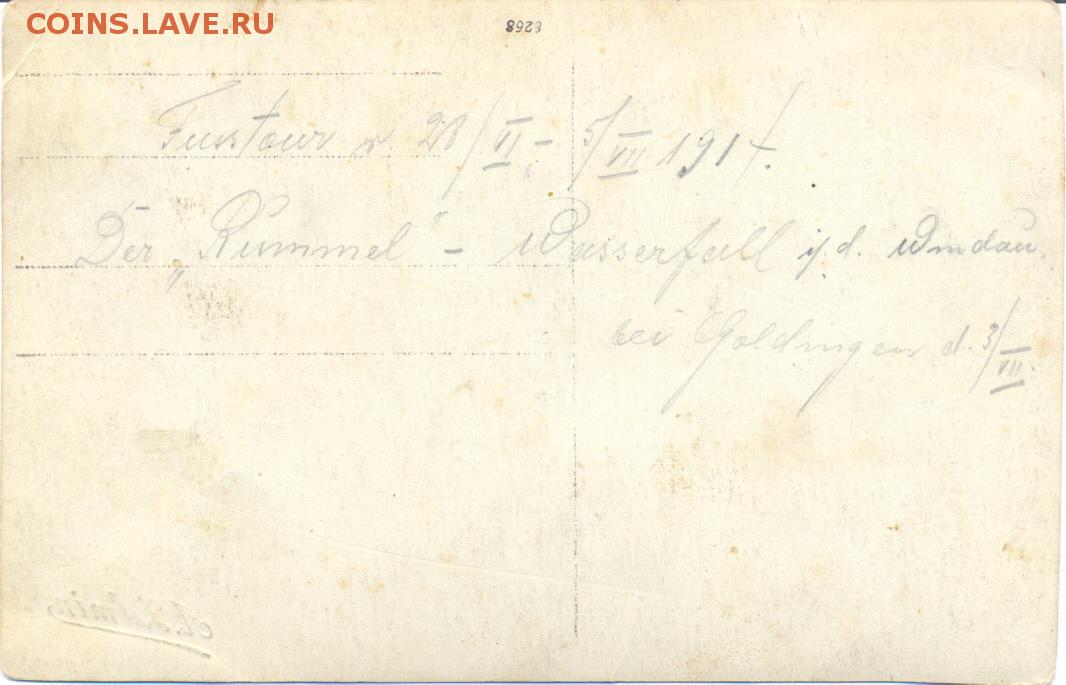 COINS.LAVE.RU
8268
Fusstour v. 28/VI - 5/VII 1917.
Der „Rummel" - Wasserfall i/d. Windau.
bei Goldingen d. 3/VII.